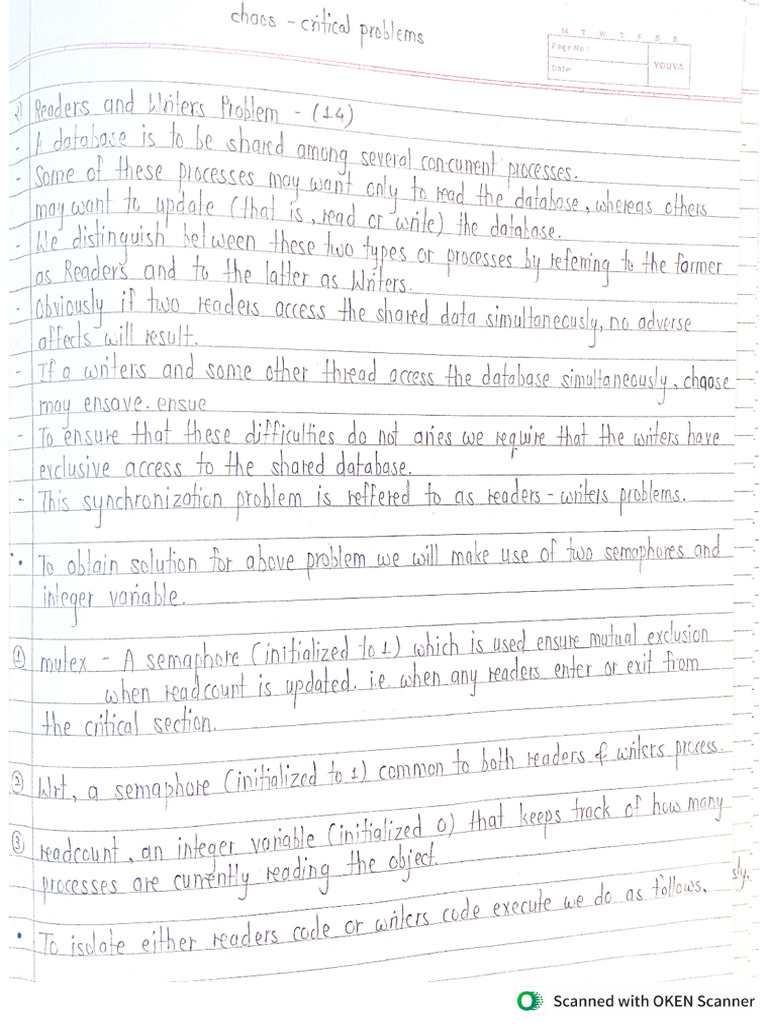 chaos - critical problems
M T W T F S S
Page No.:
Date:
YOUVA
2) Readers and Writers Problem - (14)
- A database is to be shared among several concurrent processes.
- Some of these processes may want only to read the database, whereas others
may want to update (that is, read or write) the database.
- We distinguish between these two types or processes by referring to the former
as Readers and to the latter as Writers.
- Obviously if two readers access the shared data simultaneously, no adverse
affects will result.
- If a writers and some other thread access the database simultaneously, chaose
may ensave. ensue
- To ensure that these difficulties do not aries we require that the writers have
exclusive access to the shared database.
- This synchronization problem is reffered to as readers - writers problems.
• To obtain solution for above problem we will make use of two semaphores and
integer variable.
① mutex - A semaphore (initialized to 1) which is used ensure mutual exclusion
when readcount is updated. i.e. when any readers enter or exit from
the critical section.
② Wrt, a semaphore (initialized to 1) common to both readers & writers process.
③ readcount, an integer variable (initialized 0) that keeps track of how many
processes are currently reading the object.
sly.
• To isolate either readers code or writers code execute we do as follows.
Scanned with OKEN Scanner